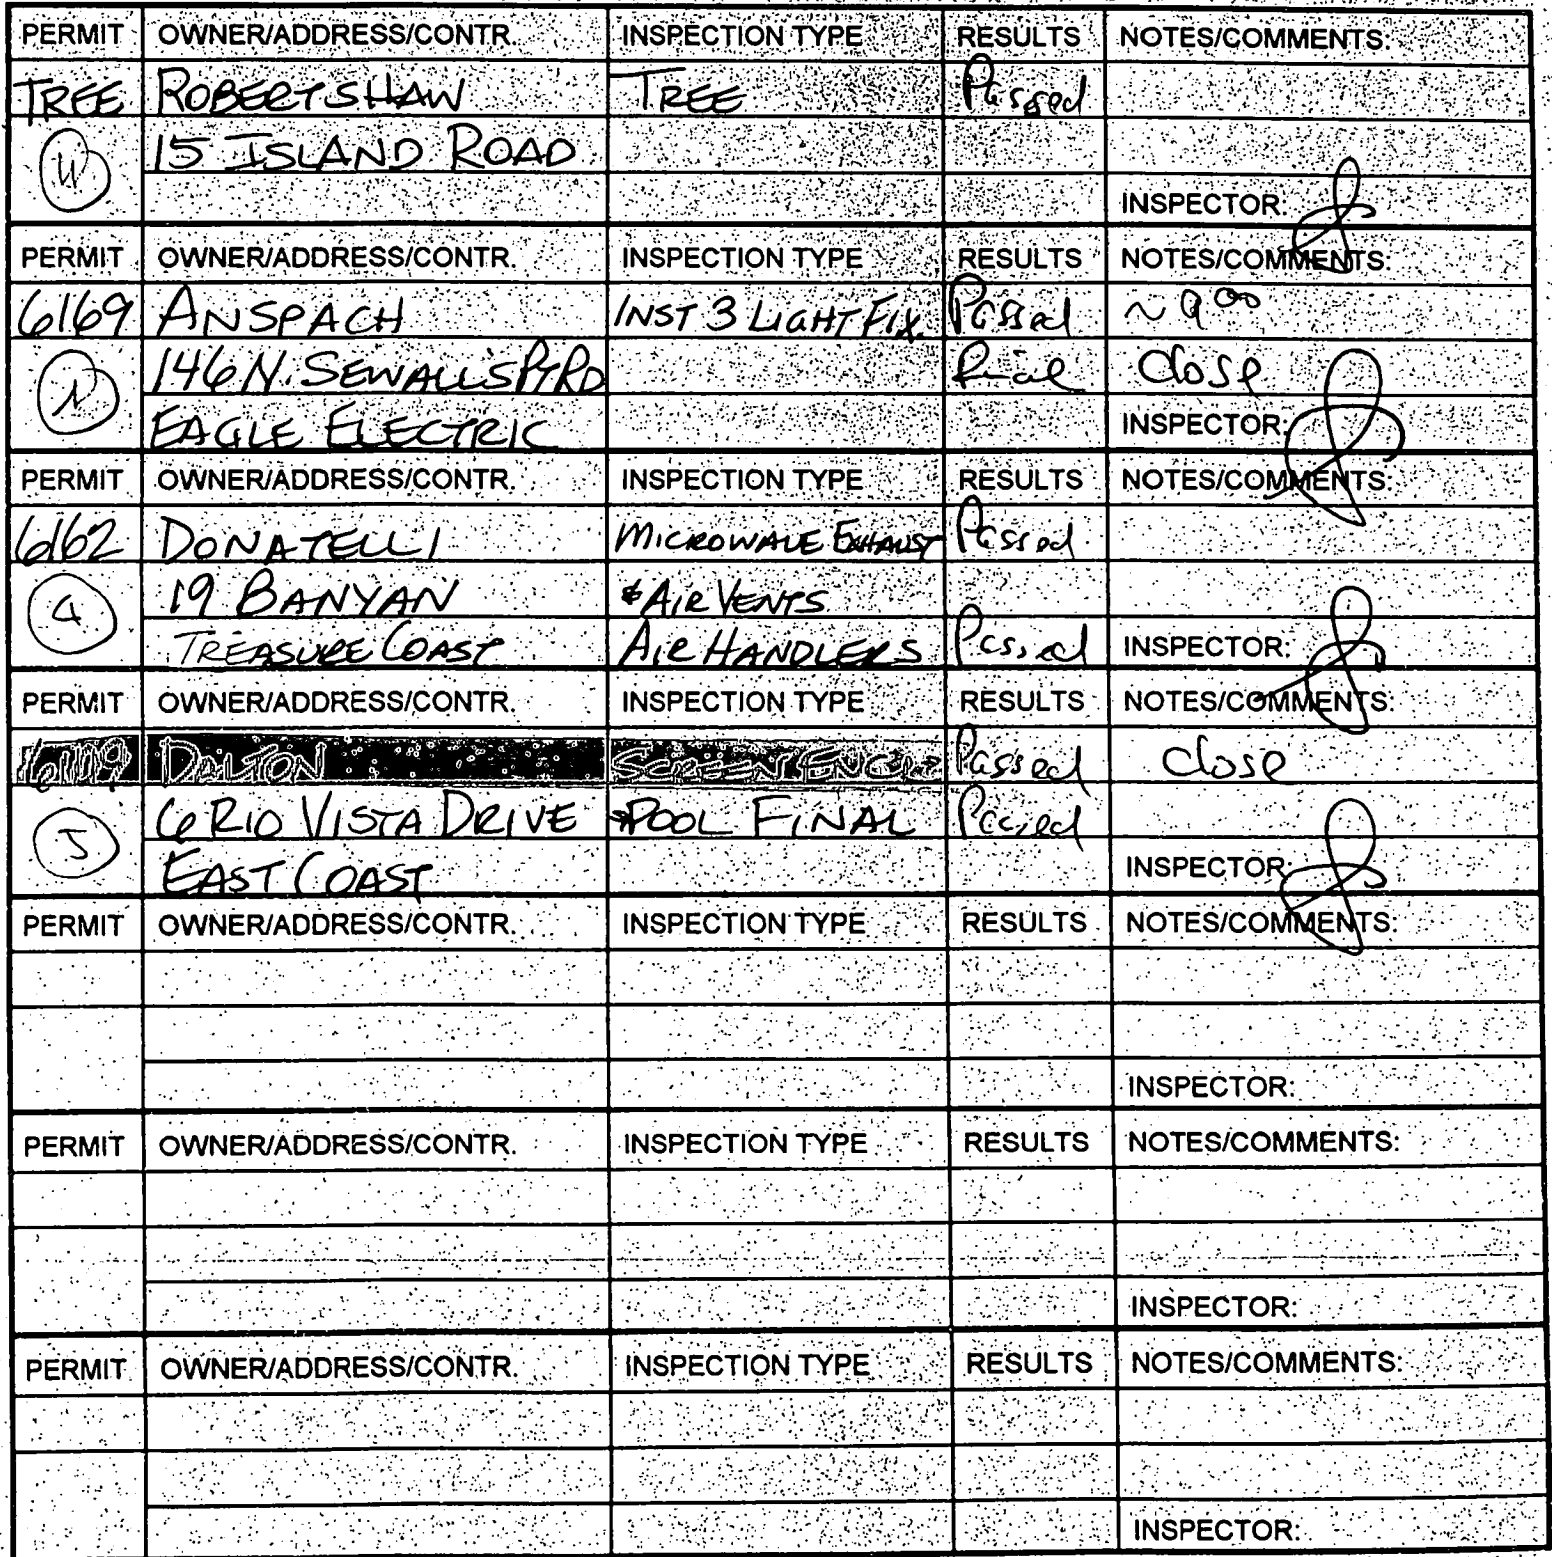 PERMIT OWNER/ADDRESS/CONTR. INSPECTION TYPE RESULTS NOTES/COMMENTS:
TREE ROBERTSHAW TREE Passed
15 ISLAND ROAD
INSPECTOR:
PERMIT OWNER/ADDRESS/CONTR. INSPECTION TYPE RESULTS NOTES/COMMENTS:
6169 ANSPACH INST 3 LIGHT FIX. Passed ~ 9 00
146 N. SEWALL'S PT RD close
EAGLE ELECTRIC INSPECTOR:
PERMIT OWNER/ADDRESS/CONTR. INSPECTION TYPE RESULTS NOTES/COMMENTS:
6162 DONATELLI MICROWAVE EXHAUST Passed
19 BANYAN & AIR VENTS
TREASURE COAST AIR HANDLERS Passed INSPECTOR:
PERMIT OWNER/ADDRESS/CONTR. INSPECTION TYPE RESULTS NOTES/COMMENTS:
6149 DALTON SCREEN ENCL. Passed close
5 6 RIO VISTA DRIVE POOL FINAL Passed
EAST COAST INSPECTOR:
PERMIT OWNER/ADDRESS/CONTR. INSPECTION TYPE RESULTS NOTES/COMMENTS:
INSPECTOR:
PERMIT OWNER/ADDRESS/CONTR. INSPECTION TYPE RESULTS NOTES/COMMENTS:
INSPECTOR:
PERMIT OWNER/ADDRESS/CONTR. INSPECTION TYPE RESULTS NOTES/COMMENTS:
INSPECTOR: